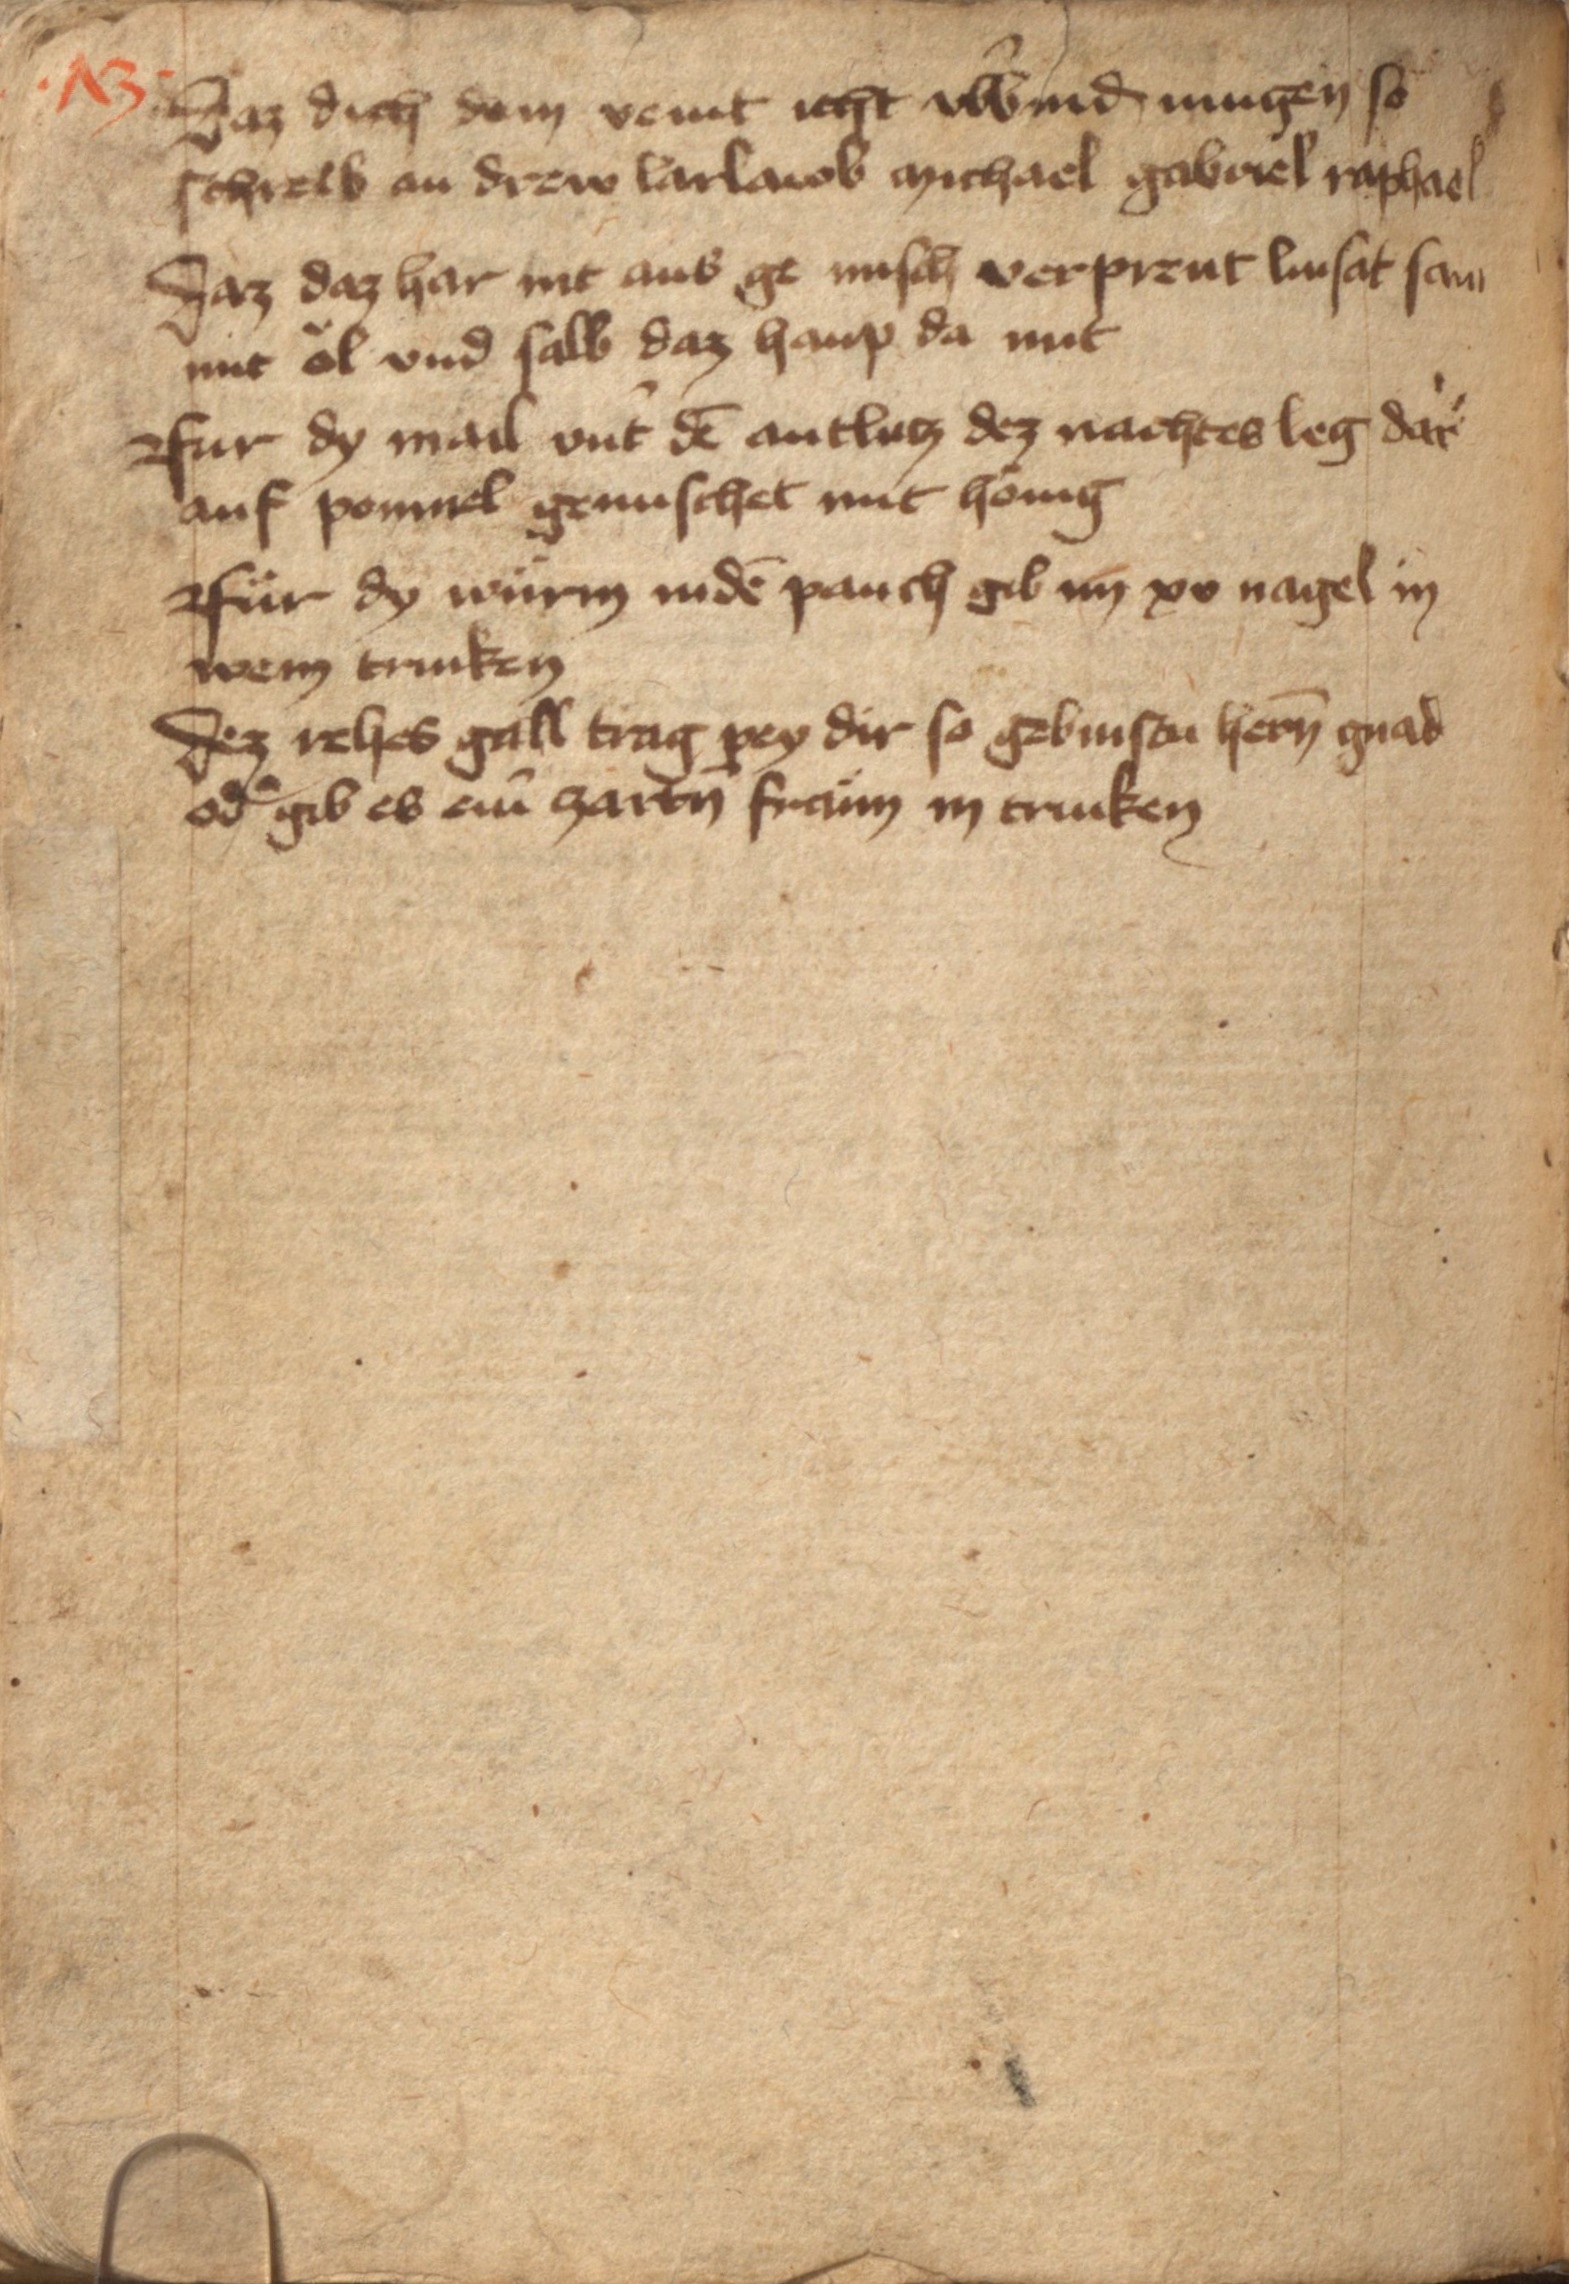 Daz dich dein veint icht vbͤwind mugen so
schreib an drew larlaub michael gabriel raphael
Daz daz har nit aus ge misch verprent linsat sam
mit öl vnd salb daz haup da mit
Fur dy mail vnt͛ dē antlutz dez nachtes leg dar
auf pommel gemischet mit hönig
Für dy würm indē pauch gib im xv nagel in
wein trinken
Dez rehes gall trag pey dir so gebinstu hern̄ gnad
od͛ gib es ein̄ zartn̄ frawn in trinken